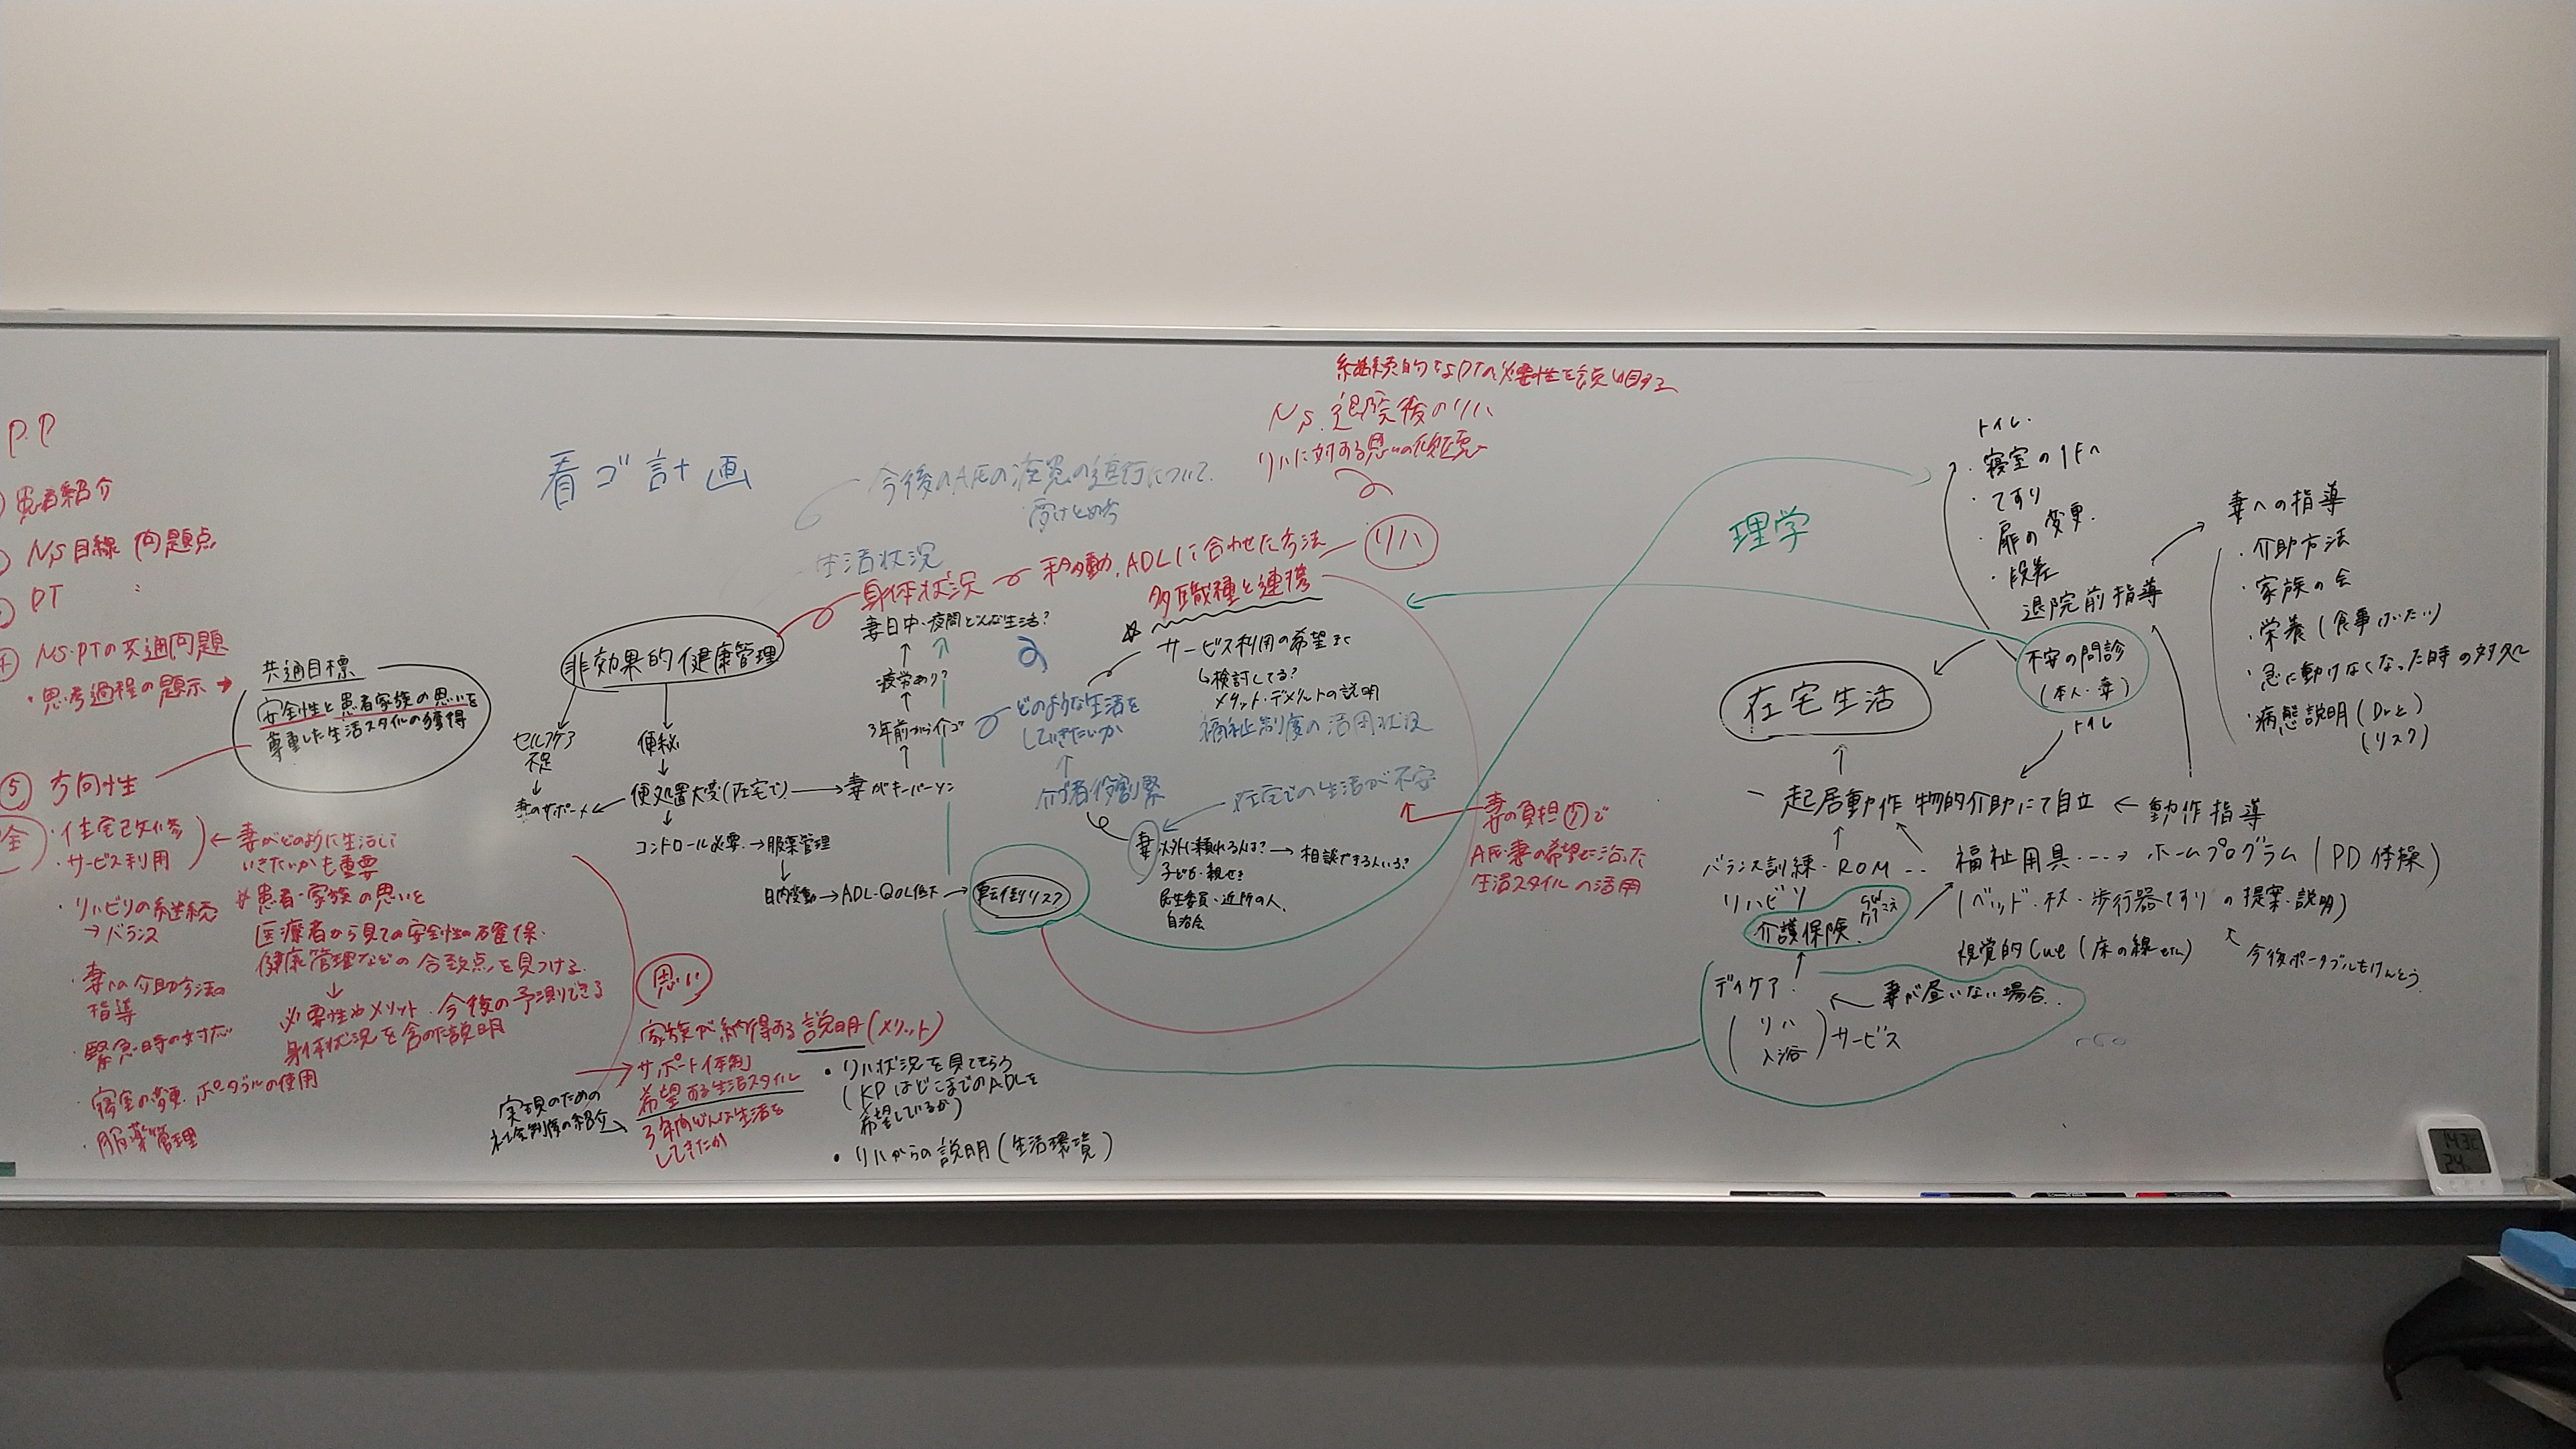 P.P
患者紹介
NS目線 問題点
PT 〃
NS・PTの共通問題
・思考過程の題示→
共通目標
安全性と患者家族の思いを
尊重した生活スタイルの獲得
⑤ 方向性
全
・住宅改修
・サービス利用
←妻がどのように生活して
いきたいかも重要
・リハビリの継続
→バランス
・妻への介助方法の
指導
・緊急時の対応
・寝室の変更 ポータブルの使用
・服薬管理
患者・家族の思いを
医療者から見ての安全性の確保・
健康管理などの合致点を見つける
↓
必要性やメリット、今後の予測できる
身体状況を含めた説明
看ゴ計画
非効果的健康管理
セルフケア
不足
↓
妻のサポート
便秘
↓
便処置大変(在宅で)→妻がキーパーソン
↓
コントロール必要→服薬管理
↓
日内変動→ADL・QOL低下→転倒リスク
今後のA氏の疾患の進行について
受けとめ方
生活状況
身体状況
移動、ADLに合わせた方法
リハ
妻日中・夜間どんな生活?
↑
疲労あり?
↑
3年前から介ゴ
↑
継続的なPTの必要性を説明する
NS.退院後のリハ
リハに対する思いの傾聴
多職種と連携
☆
サービス利用の希望
↳検討してる?
メリット・デメリットの説明
福祉制度の活用状況
どのような生活を
していきたいか
↑
介ゴ者役割緊
在宅での生活が不安
妻以外に頼れる人は?→相談できる人いる?
子ども・親せき
民生委員・近所の人
自治会
妻の負担⑦で
A氏・妻の希望に沿った
生活スタイルの活用
思い
家族が納得する説明(メリット)
サポート体制
希望する生活スタイル
3年間どんな生活を
してきたか
実現のための
社会制度の紹介
・リハ状況を見てもらう
(KPはどこまでのADLを
希望しているか)
・リハからの説明(生活環境)
理学
トイレ
・寝室の1Fへ
・てすり
・扉の変更
・段差
退院前指導
妻への指導
・介助方法
・家族の会
・栄養(食事 けいたい)
・急に動けなくなった時の対処
・病態説明(Drと)
(リスク)
不安の問診
(本人・妻)
トイレ
在宅生活
↑
起居動作 物的介助にて自立 ← 動作指導
バランス訓練・ROM…
リハビリ
福祉用具…→ホームプログラム(PD体操)
(ベッド・杖・歩行器てすり の提案・説明)
介護保険
視覚的Cue(床の線etc)
今後ポータブルもけんとう
デイケア
(リハ
入浴)サービス
妻が昼いない場合